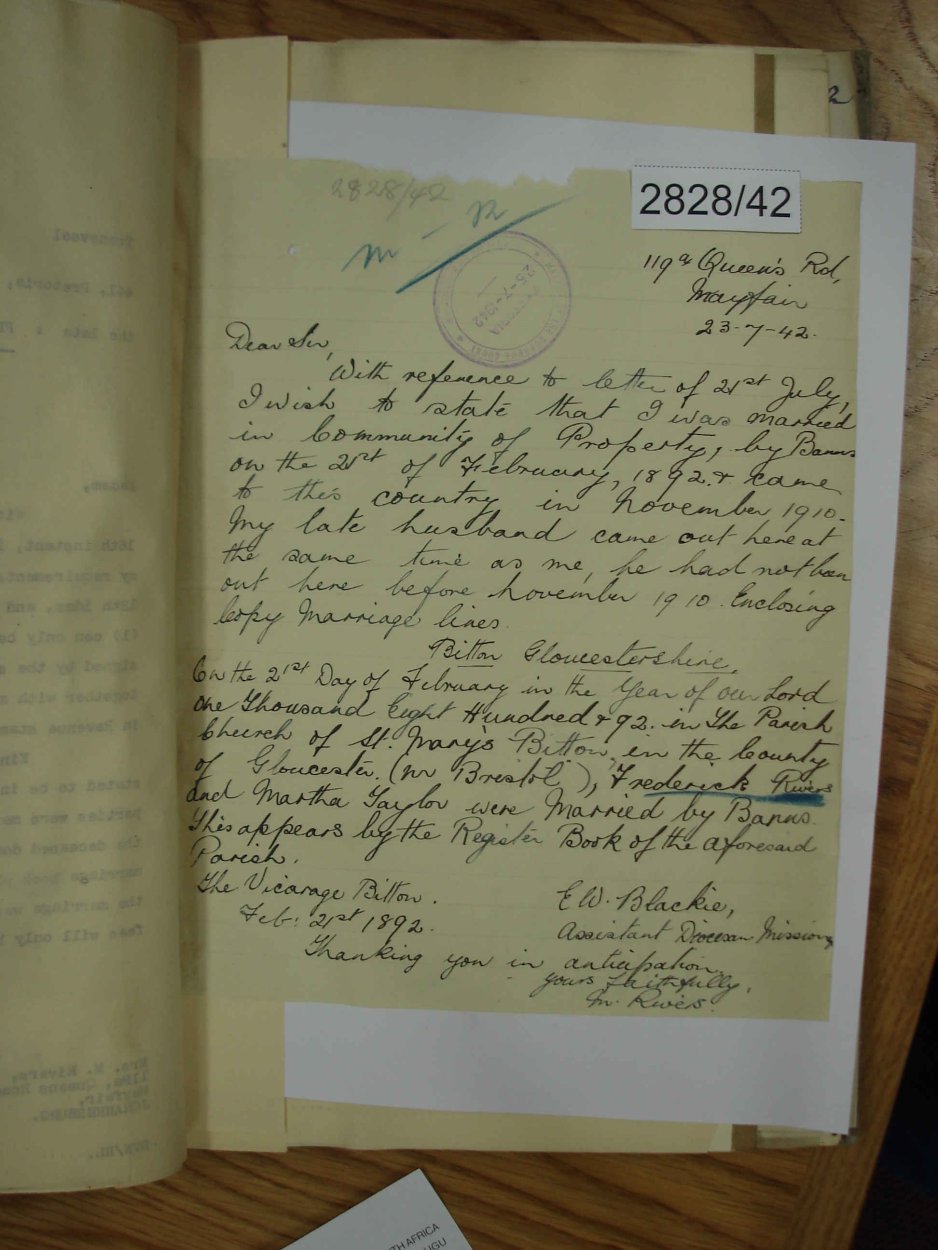 2
2828/42
2828/42
m - R
25-7-1942
PRETORIA
119a Queen's Rd,
Mayfair
23-7-42.
Dear Sir,
With reference to letter of 21st July,
I wish to state that I was married
in Community of Property, by Banns
on the 21st of February, 1892 & came
to this country in November 1910.
My late husband came out here at
the same time as me, he had not been
out here before November 1910. Enclosing
Copy Marriage lines.
Bitton Gloucestershire.
On the 21st Day of February in the Year of our Lord
One Thousand Eight Hundred & 92. in The Parish
Church of St. Mary's Bitton, in the County
of Gloucester. (nr Bristol), Frederick Rivers
and Martha Taylor were Married by Banns.
This appears by the Register Book of the aforesaid
Parish.
The Vicarage Bitton.
Feb: 21st 1892.
E W. Blackie,
Assistant Diocesan Missionr
Thanking you in anticipation.
yours faithfully,
M. Rivers.
Transvaal
Pretoria,
the late
Madam,
16th instant,
my requirements
12th idem, and
(1) can only be
signed by the
together with a
in Revenue stam
stated to be in
parties were
the deceased
marriage
the marriage
fees will only
Mrs. M. Rivers,
119a, Queens Road
Mayfair,
JOHANNESBURG.
TH AFRICA